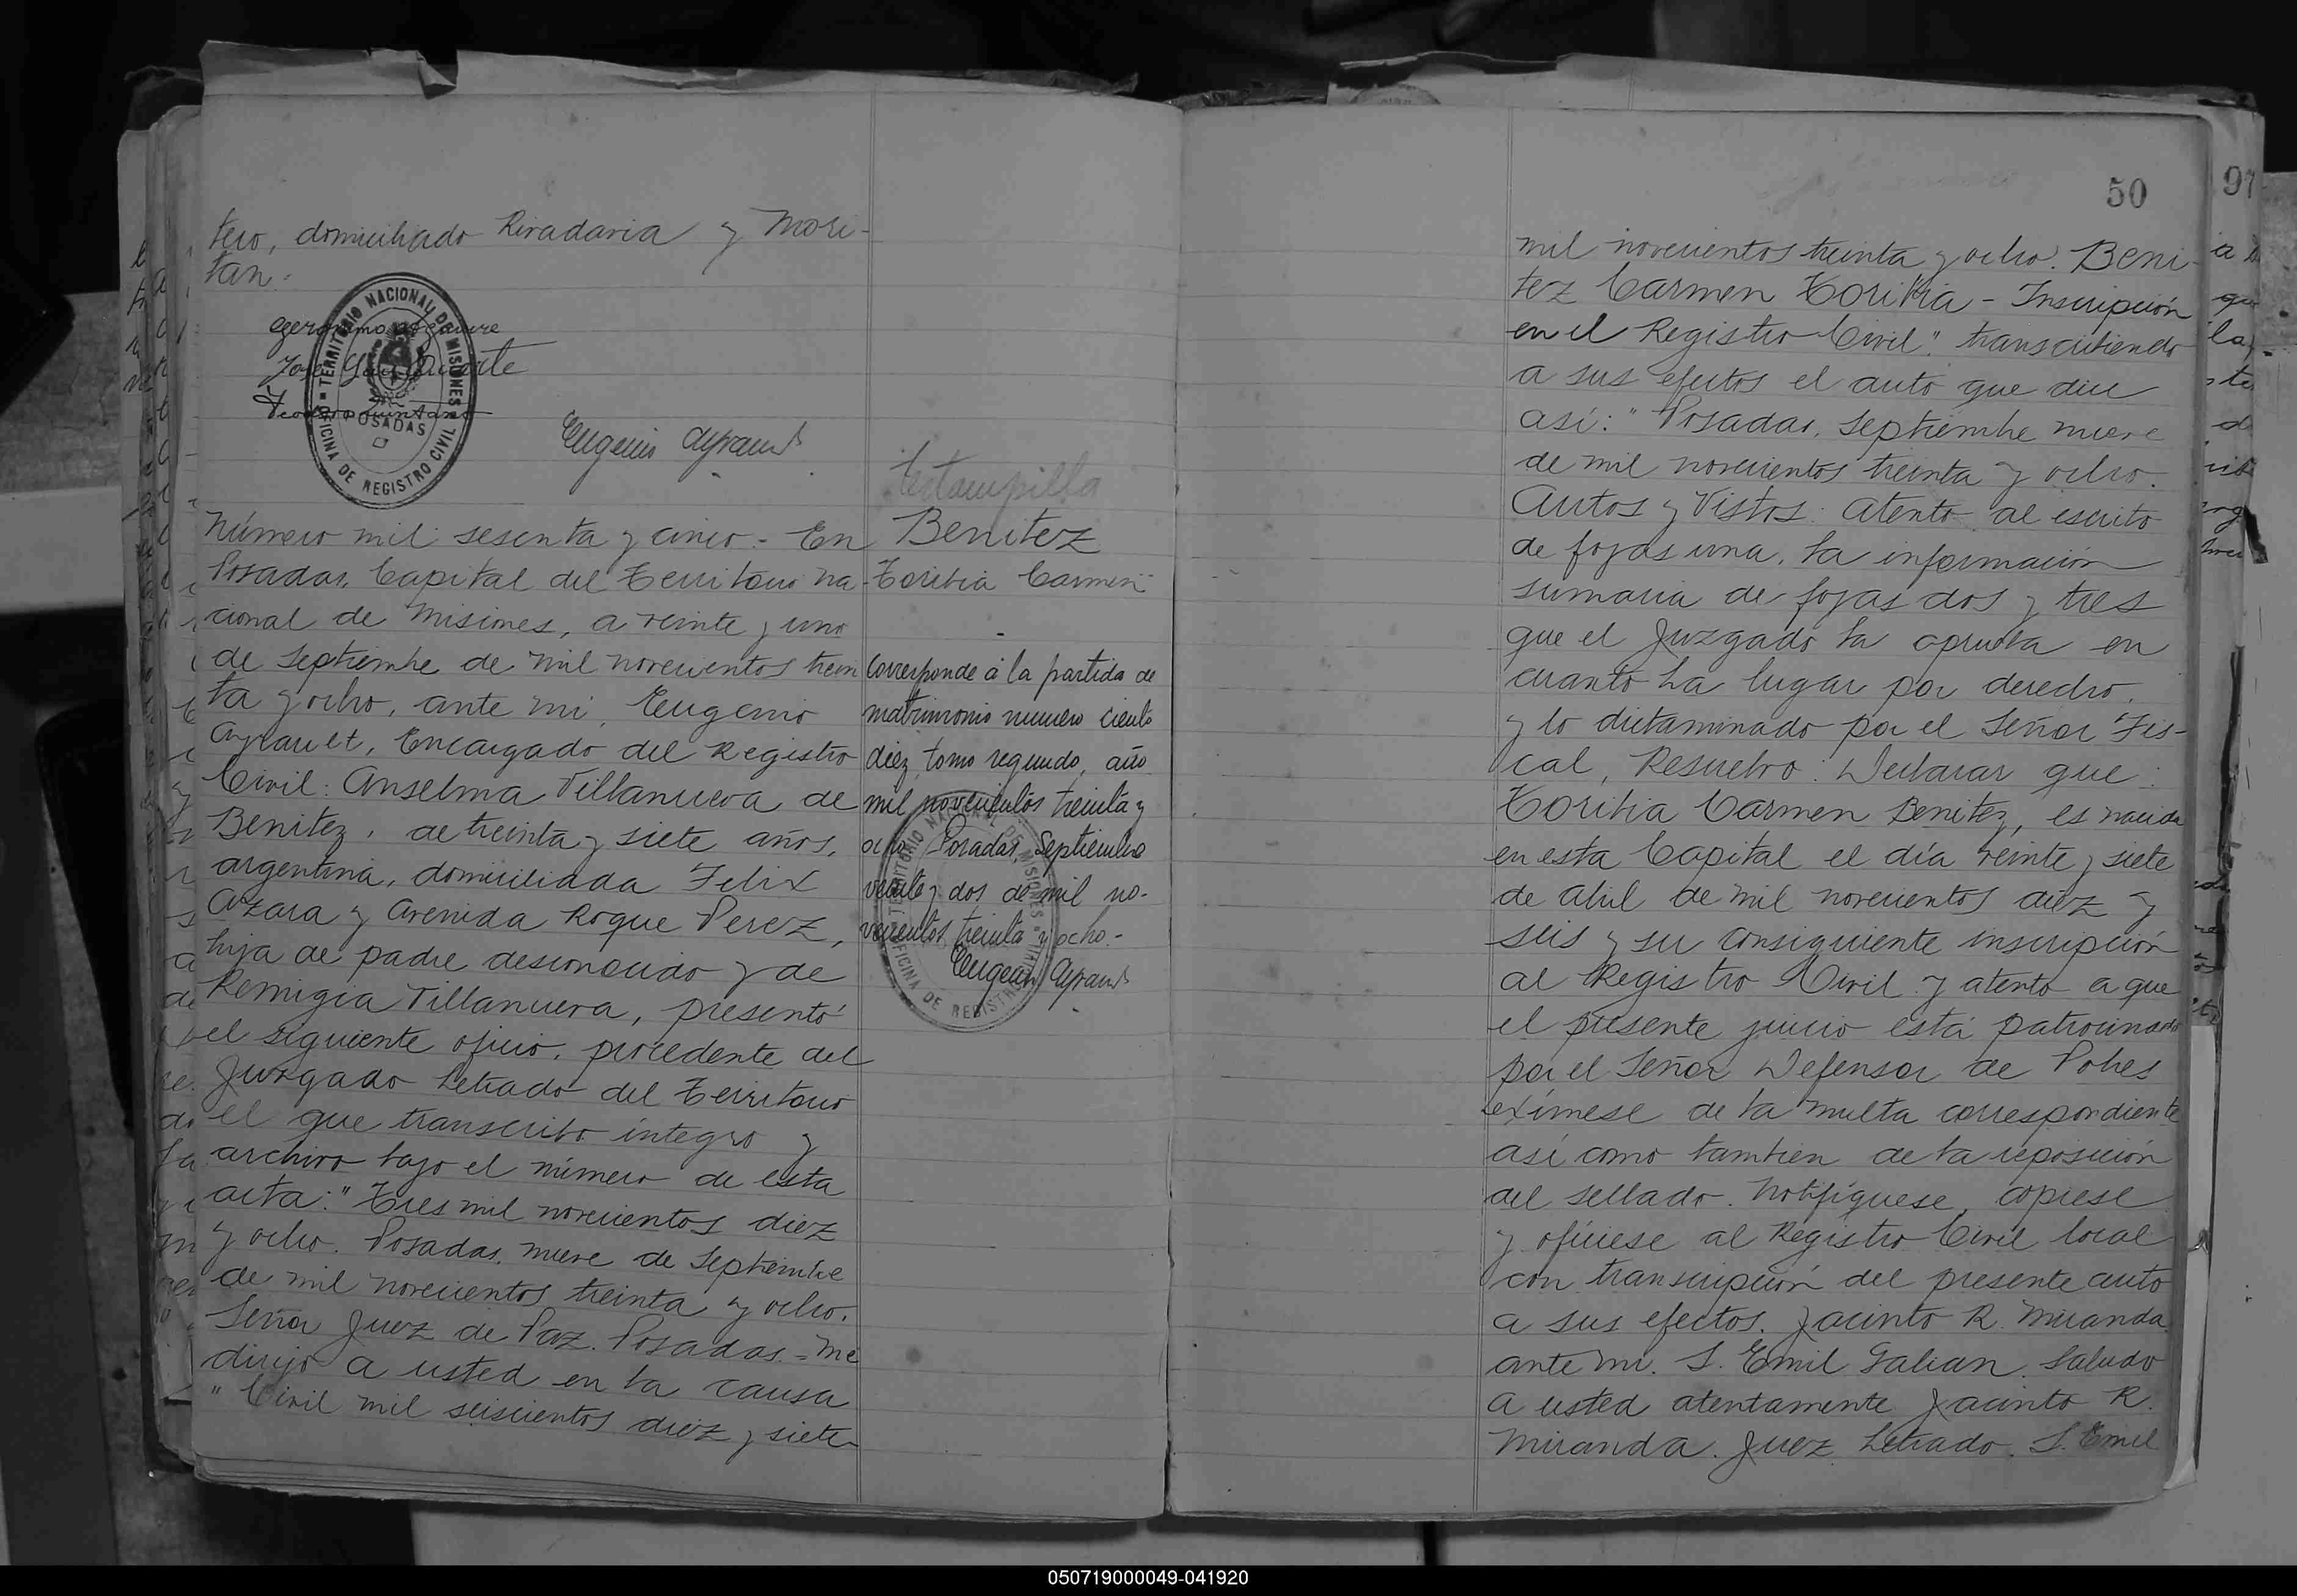 tero, domiciliado Rivadavia y Mori-
tan.
TERRITORIO NACIONAL DE MISIONES
POSADAS
OFICINA DE REGISTRO CIVIL
Eugenio Ayrault
Número mil sesenta y cinco. - En
Posadas, Capital del Territorio Na-
cional de Misiones, a veinte y uno
de Septiembre de mil novecientos trein
ta y ocho, ante mi, Eugenio
Ayrault, Encargado del Registro
Civil: Anselma Villanueva de
Benitez, de treinta y siete años,
argentina, domiciliada Felix
Azara y Avenida Roque Perez,
hija de padre desconocido y de
Remigia Villanueva, presentó
el siguiente oficio, procedente del
Juzgado Letrado del Territorio
el que transcribo íntegro y
archivo bajo el número de esta
acta: "Tres mil novecientos diez
y ocho. Posadas, nueve de Septiembre
de mil novecientos treinta y ocho.
Señor Juez de Paz. Posadas. - Me
dirijo a usted en la causa
"Civil mil seiscientos diez y siete
Estampilla
Benitez
Toribia Carmen
Corresponde á la partida de
matrimonio numero ciento
diez, tomo segundo, año
mil novecientos treinta y
ocho. Posadas, Septiembre
veinte y dos de mil no-
vecientos treinta y ocho.-
Eugenio Ayrault
TERRITORIO NACIONAL DE MISIONES
OFICINA DE REGISTRO CIVIL
50
97
mil novecientos treinta y ocho. Beni-
tez Carmen Toribia - Inscripción
en el Registro Civil". transcribiendo
a sus efectos el auto que dice
así: "Posadas, Septiembre nueve
de mil novecientos treinta y ocho.
Autos y Vistos: Atento al escrito
de fojas una, la información
sumaria de fojas dos y tres
que el Juzgado la aprueba en
cuanto ha lugar por derecho,
y lo dictaminado por el Señor Fis-
cal, Resuelvo: Declarar que
Toribia Carmen Benitez, es nacida
en esta Capital el día veinte y siete
de Abril de mil novecientos diez y
seis y su consiguiente inscripción
al Registro Civil y atento a que
el presente juicio está patrocinado
por el Señor Defensor de Pobres
exímese de la multa correspondiente
así como tambien de la reposición
del sellado. Notifíquese, copiese
y ofíciese al Registro Civil local
con transcripción del presente auto
a sus efectos. Jacinto R. Miranda
ante mi. S. Emil Galian. Saludo
a usted atentamente Jacinto R.
Miranda. Juez Letrado. S. Emil
050719000049-041920